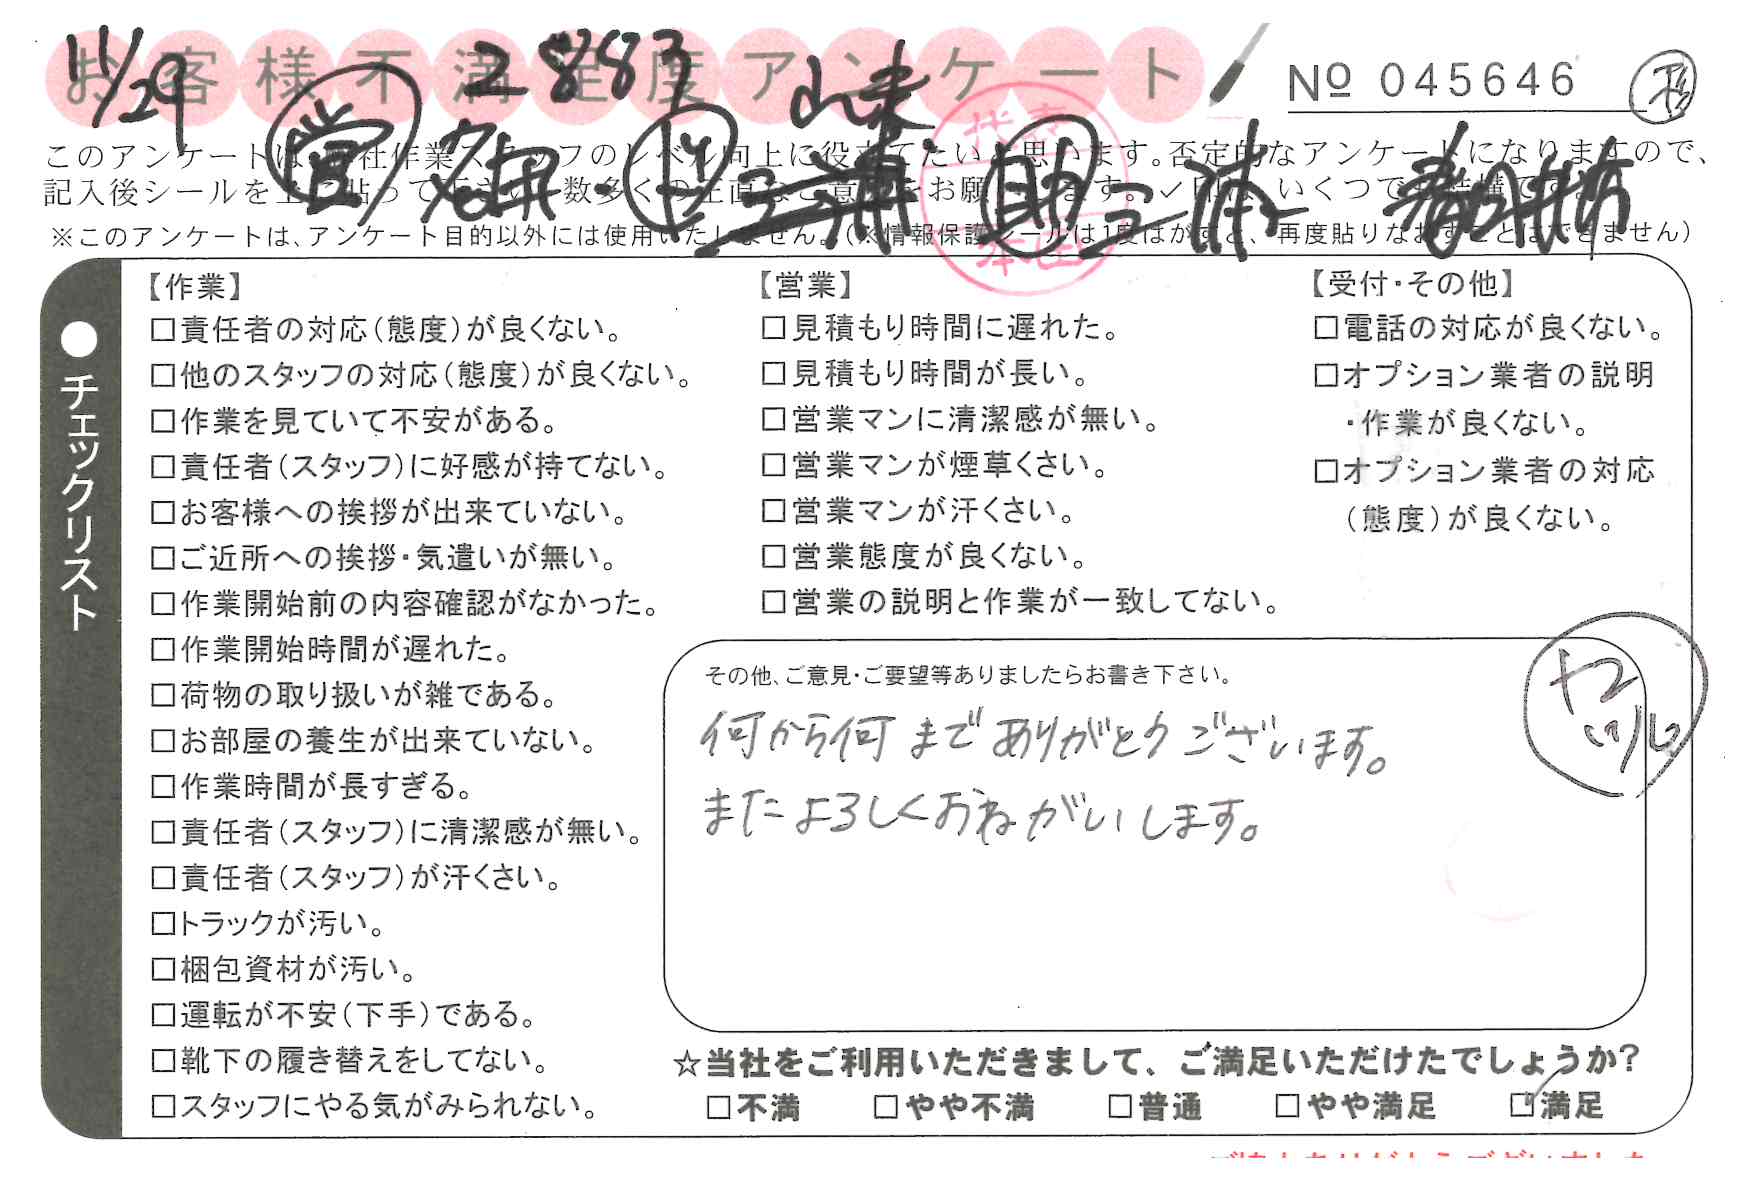 お客様不満足度アンケート
11/29
2883
No 045646
このアンケートは、当社作業スタッフのレベル向上に役立てたいと思います。否定的なアンケートになりますので、
記入後シールを上に貼って下さい。数多くの正直なご意見をお願いします。✓印は、いくつでも結構です。
※このアンケートは、アンケート目的以外には使用いたしません。(※情報保護シールは1度はがすと、再度貼りなおすことはできません)
営
助 三浦
代表
本店
●チェックリスト
【作業】
□責任者の対応(態度)が良くない。
□他のスタッフの対応(態度)が良くない。
□作業を見ていて不安がある。
□責任者(スタッフ)に好感が持てない。
□お客様への挨拶が出来ていない。
□ご近所への挨拶・気遣いが無い。
□作業開始前の内容確認がなかった。
□作業開始時間が遅れた。
□荷物の取り扱いが雑である。
□お部屋の養生が出来ていない。
□作業時間が長すぎる。
□責任者(スタッフ)に清潔感が無い。
□責任者(スタッフ)が汗くさい。
□トラックが汚い。
□梱包資材が汚い。
□運転が不安(下手)である。
□靴下の履き替えをしてない。
□スタッフにやる気がみられない。
【営業】
□見積もり時間に遅れた。
□見積もり時間が長い。
□営業マンに清潔感が無い。
□営業マンが煙草くさい。
□営業マンが汗くさい。
□営業態度が良くない。
□営業の説明と作業が一致してない。
【受付・その他】
□電話の対応が良くない。
□オプション業者の説明
・作業が良くない。
□オプション業者の対応
(態度)が良くない。
その他、ご意見・ご要望等ありましたらお書き下さい。
何から何まで ありがとうございます。
またよろしくおねがいします。
☆当社をご利用いただきまして、ご満足いただけたでしょうか?
□不満 □やや不満 □普通 □やや満足 ☑満足